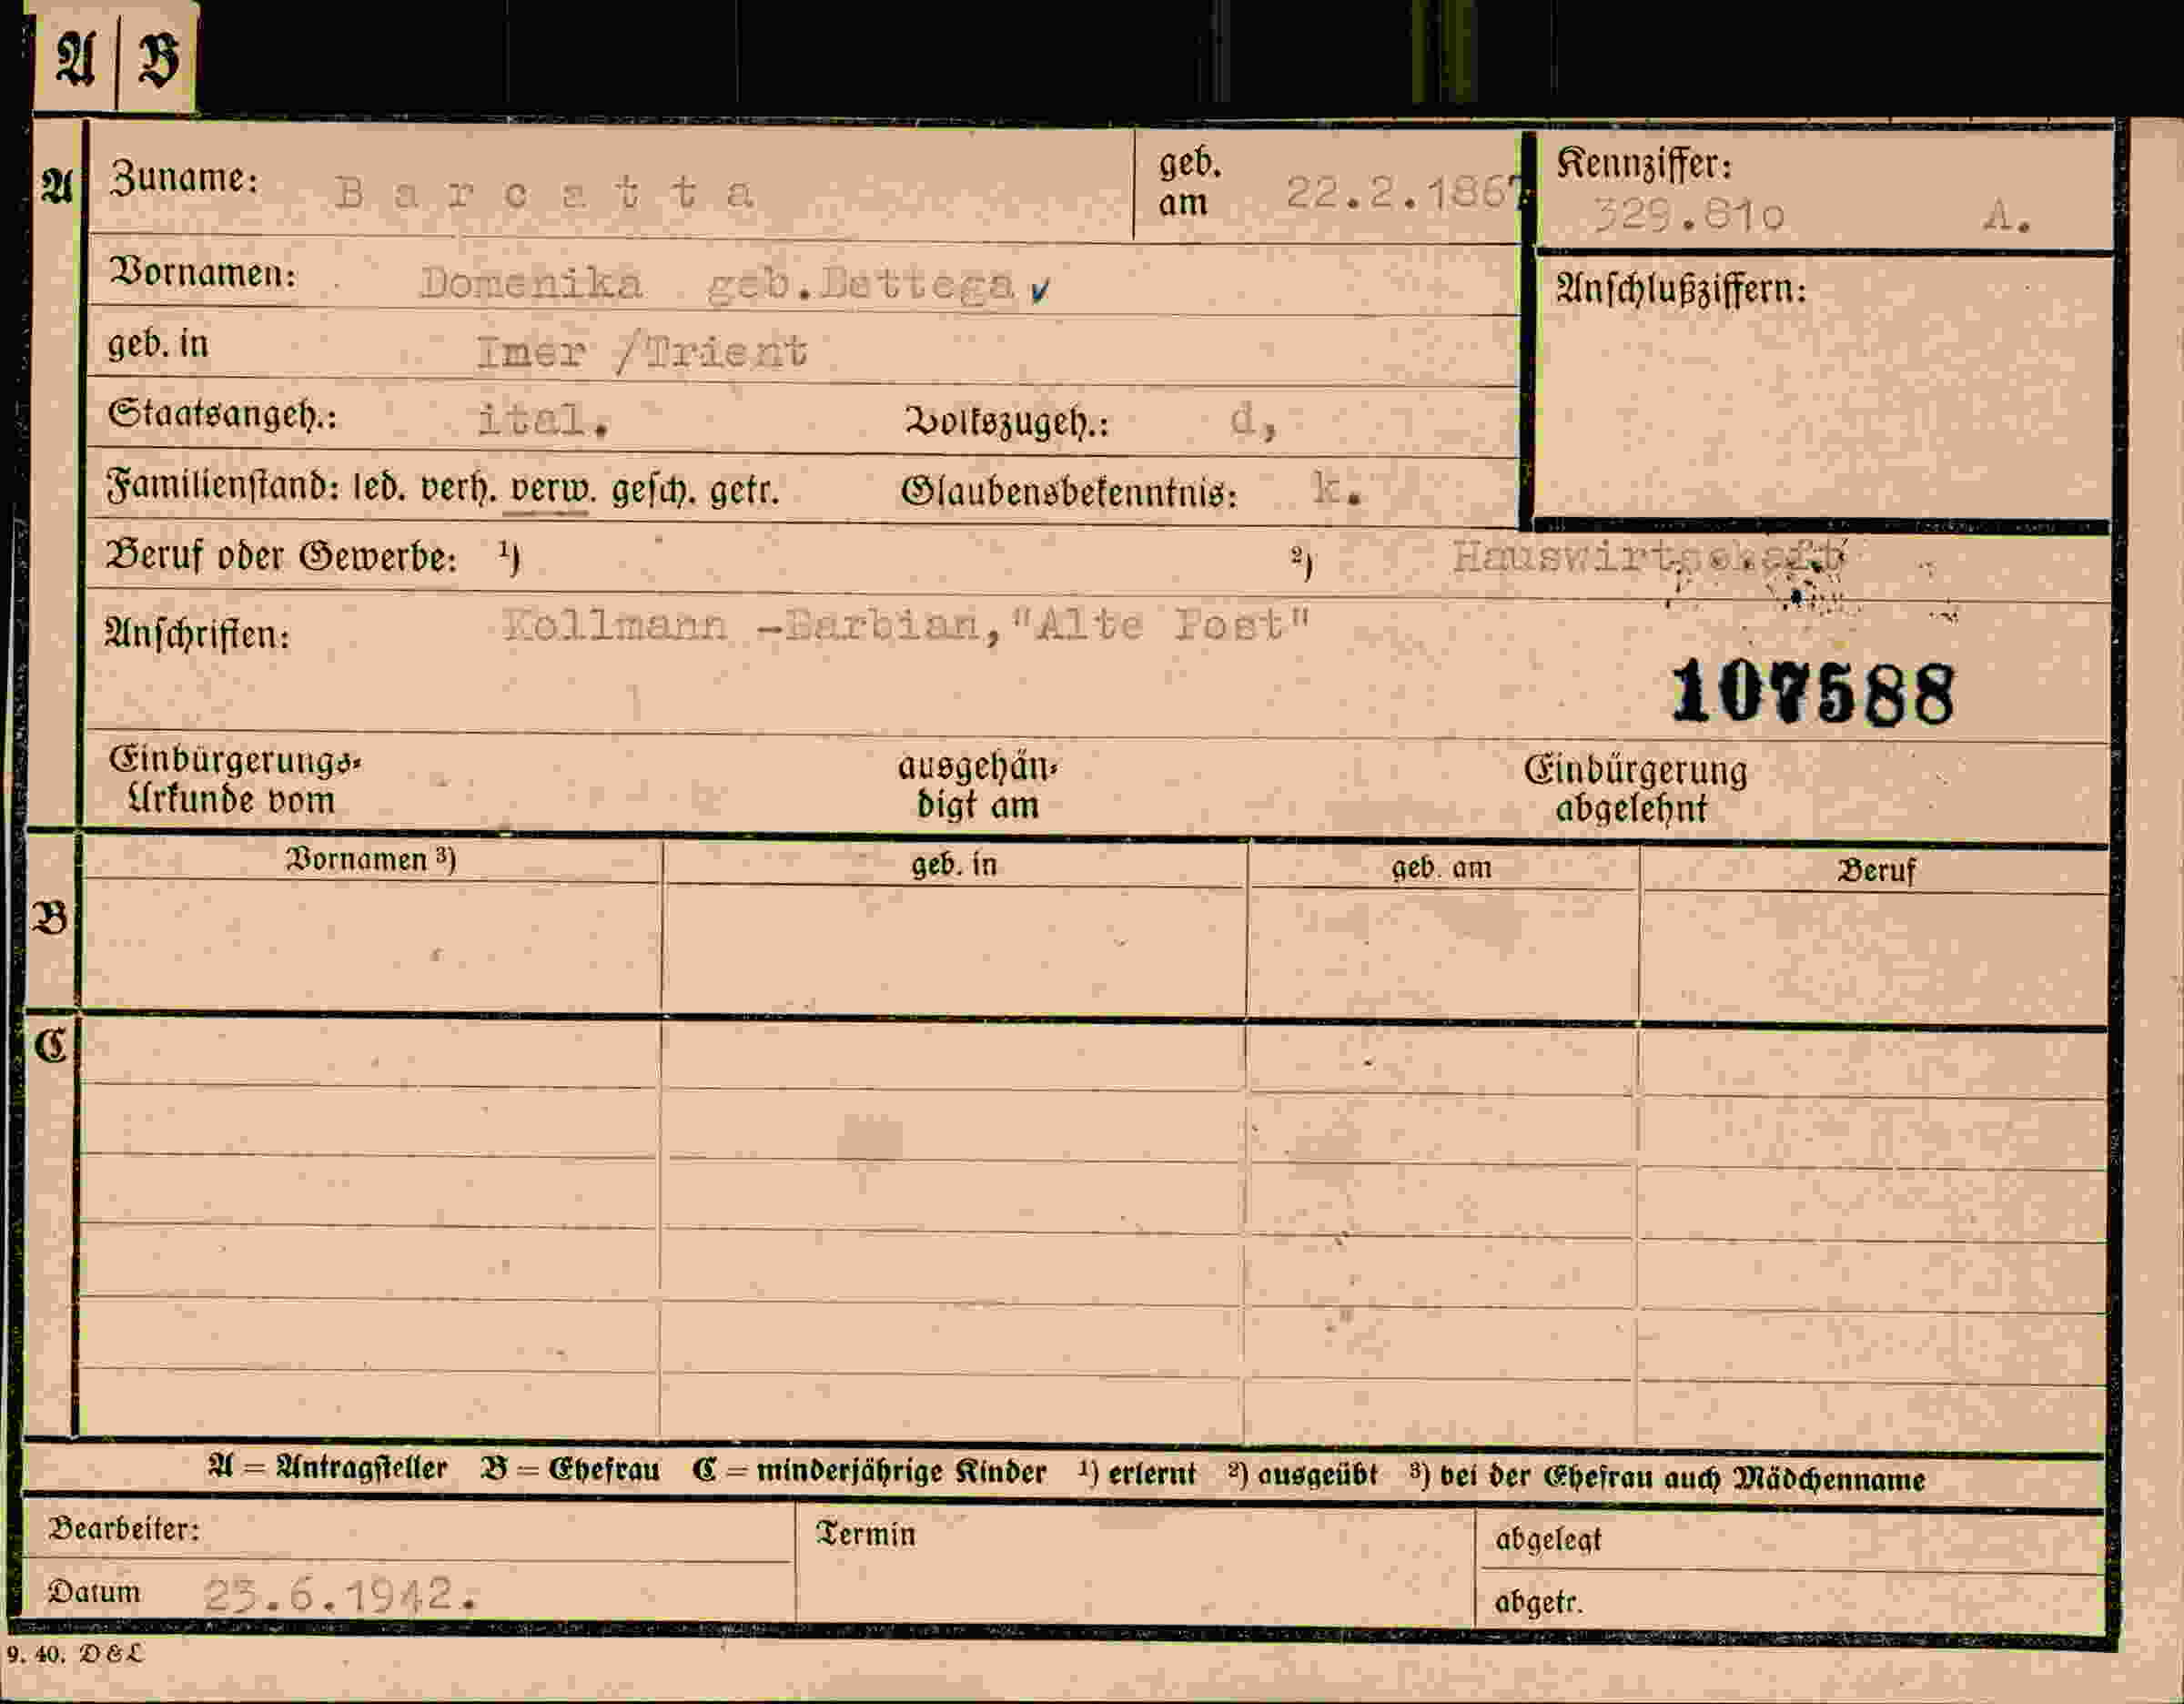 A B
A Zuname: Barcatta geb. am 22.2.1867 Kennziffer:
329.810 A.
Vornamen: Domenika geb.Bettega ✓ Anschlußziffern:
geb. in Imer /Trient
Staatsangeh.: ital. Volkszugeh.: d,
Familienstand: led. verh. verw. gesch. getr. Glaubensbekenntnis: k.
Beruf oder Gewerbe: ¹) ²) Hauswirtschaft
Anschriften: Kollmann -Barbian,"Alte Post"
107588
Einbürgerungs- ausgehän- Einbürgerung
Urkunde vom digt am abgelehnt
Vornamen ³) geb. in geb. am Beruf
B
C
A = Antragsteller B = Ehefrau C = minderjährige Kinder ¹) erlernt ²) ausgeübt ³) bei der Ehefrau auch Mädchenname
Bearbeiter: Termin abgelegt
Datum 23.6.1942. abgetr.
9. 40. D & L